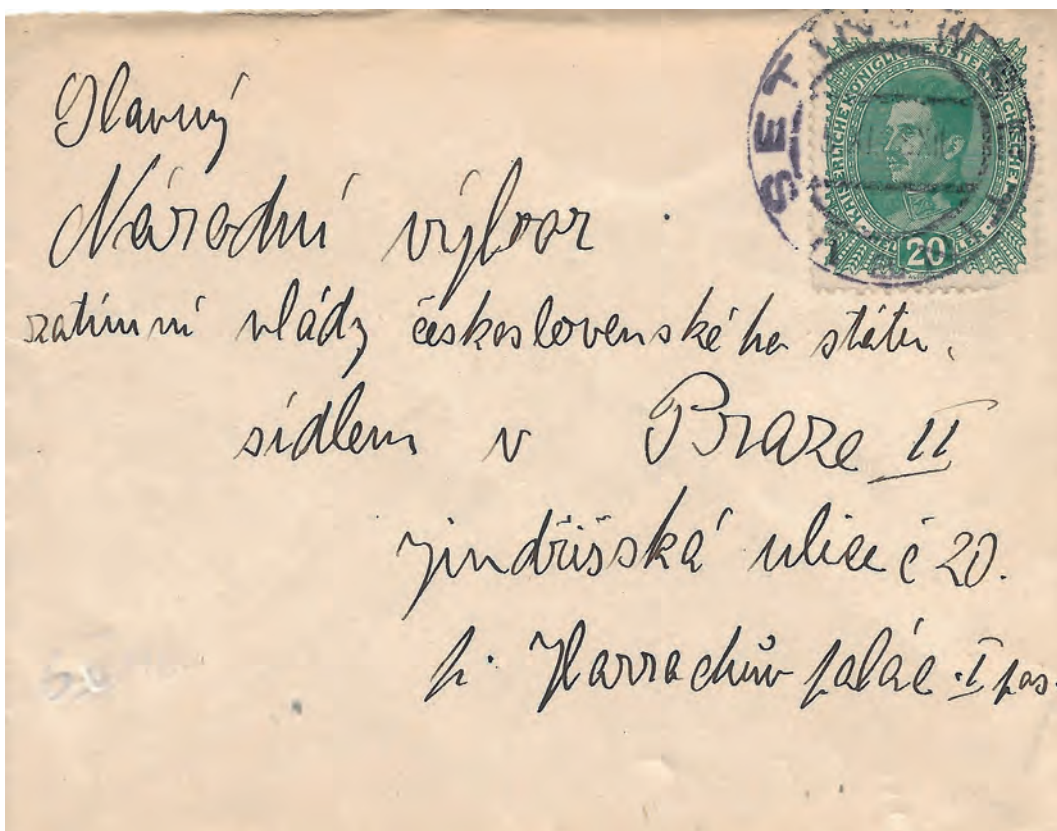 Slavný
Národní výbor
zatímní vlády československého státu.
sídlem v Praze II
jindřišská ulice č 20.
Harrachův palác I pos.
SETIN
KAISERLICHE KÖNIGLICHE ÖSTERREICHISCHE
20